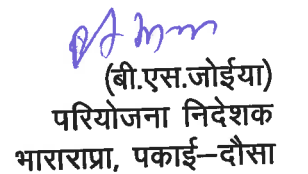 (बी.एस.जोईया)
परियोजना निदेशक
भाराराप्रा, पकाई–दौसा